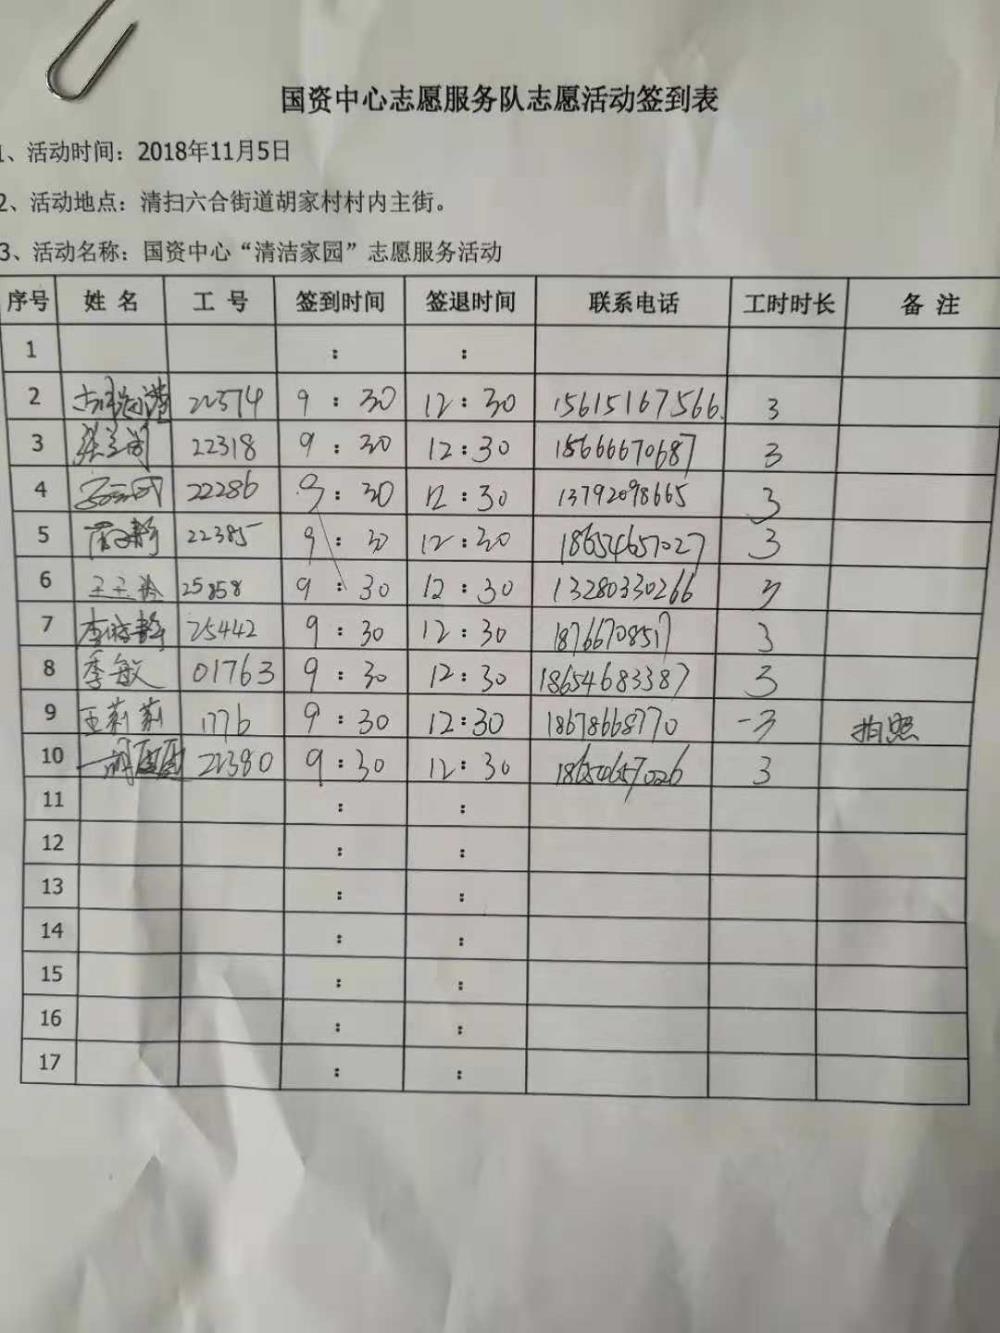 国资中心志愿服务队志愿活动签到表
1、活动时间：2018年11月5日
2、活动地点：清扫六合街道胡家村村内主街。
3、活动名称：国资中心“清洁家园”志愿服务活动
序号 姓名 工号 签到时间 签退时间 联系电话 工时时长 备注
1 : :
2 22574 9:30 12:30 15615167566 3
3 22318 9:30 12:30 15666670687 3
4 22286 9:30 12:30 13792098665 3
5 22385 9:30 12:30 18654657027 3
6 25858 9:30 12:30 13280330266 3
7 李晓静 25442 9:30 12:30 1876670851 3
8 季敏 01763 9:30 12:30 18654683387 3
9 王莉莉 1776 9:30 12:30 18678668770 3 拍照
10 胡圆圆 22380 9:30 12:30 18654657026 3
11 : :
12 : :
13 : :
14 : :
15 : :
16 : :
17 : :